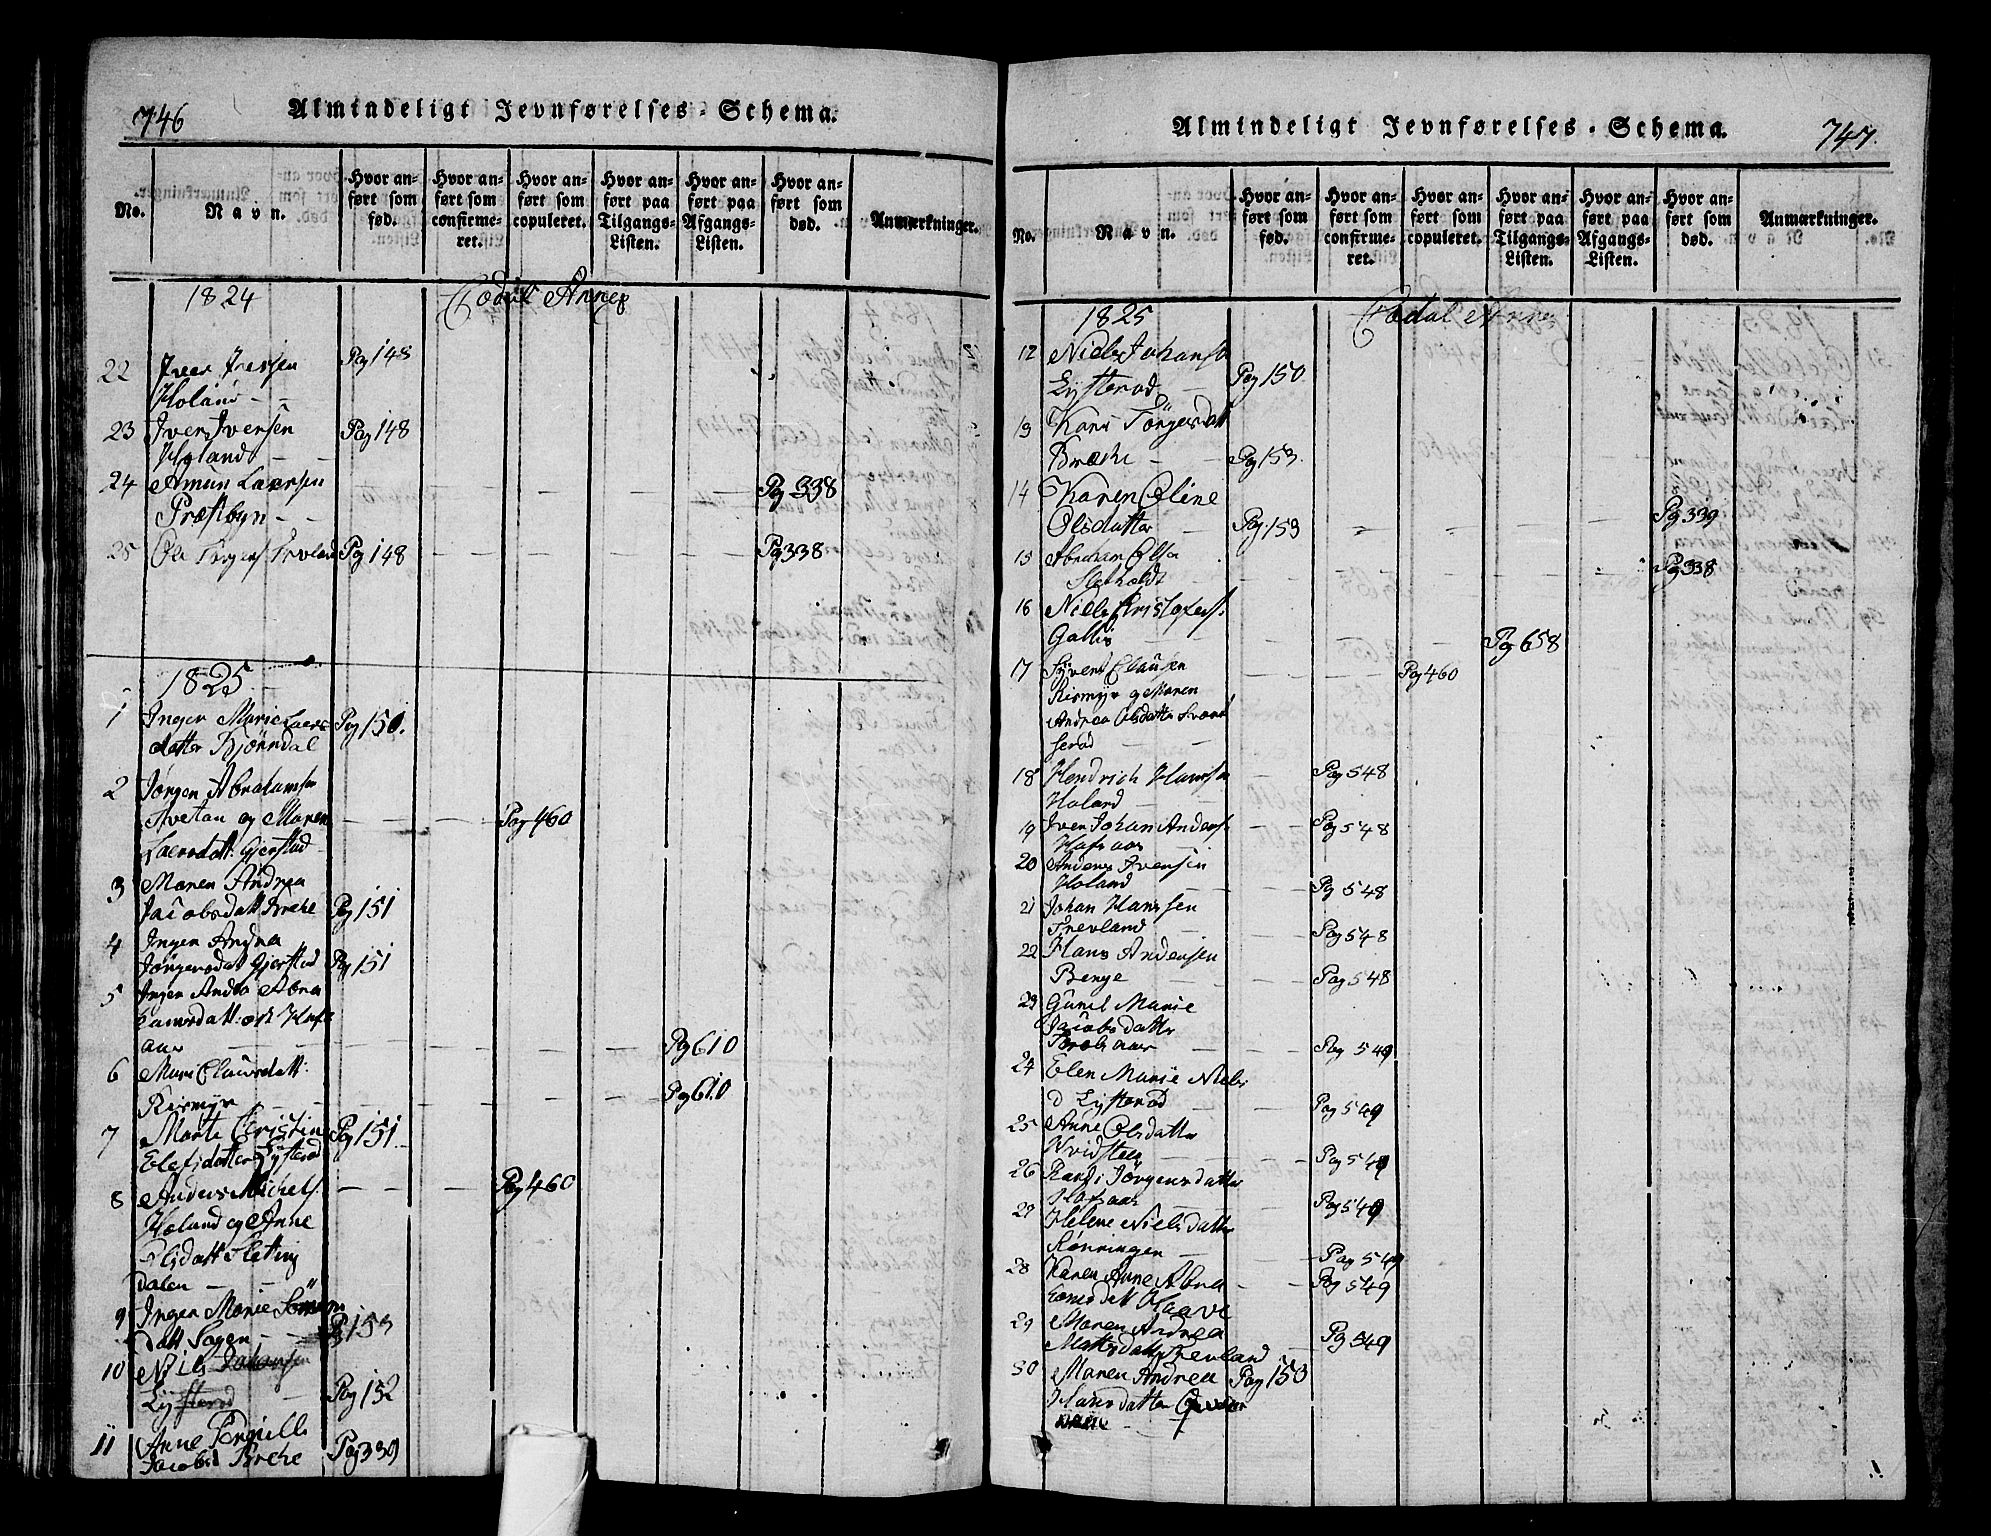 746
Almindeligt Jevnførelses-Schema.
No.
Navn.
Hvor an-
ført som
fød.
Hvor an-
ført som
confirme-
ret.
Hvor an-
ført som
copuleret.
Hvor an-
ført paa
Tilgangs-
Listen.
Hvor an-
ført paa
Afgangs-
Listen.
Hvor an-
ført som
død.
Anmærkninger.
1824 Annex
22 Iver Iversen Pag 148
Holand - -
23 Iver Iversen Pag 148
Holand - -
24 Amun Laersen - - - - - Pg 338
Præstbyn - -
25 Ole Pag 148 - - - - Pg 338
1825
1 Inger Marie Laers Pag 150.
datter Kjörndal
2 Jörgen Abrahamsen
Avetan og Maren - - Pag 460
Laersdatt: Gjerstad
3 Maren Andrea
Jacobsdatt Breke Pg 151
4 Inger Andrea
Jörgensdat Gjerstad Pg 151
5 Inger Andrea Abra
hamsdatt:
aas - - - - Pg 610
6 Mari Clausdatt:
Rismyr - - - - - Pg 610
7 Marte Christine Pag 151
Elefsdatter Lysterød
8 Anders Michels. - - Pag 460
Holand og Anne
Olsdatt Sleting
dalen - -
9 Inger Marie
datt Pg 153
10 Niels Johansen
Lysterød - Pag 152
11 Anne Pernille
Jacobsd Breke Pag 339
Almindeligt Jevnførelses-Schema.
747.
No.
Navn.
Hvor an-
ført som
fød.
Hvor an-
ført som
confirme-
ret.
Hvor an-
ført som
copuleret.
Hvor an-
ført paa
Tilgangs-
Listen.
Hvor an-
ført paa
Afgangs-
Listen.
Hvor an-
ført som
død.
Anmærkninger.
1825 Annex
12 Niels Johans
Lysterød - Pag 150.
13 Kari Törgersdatt
Bræche - - Pg 153.
14 Karen Oline
Olsdatter - Pg. 153 - - - - Pg 339
15 Abraham Olsen
- - - - - Pg 338
16 Niels Kristofers.
- - - - Pg 658
17 Syvert Clausen - - - Pag 460
Rismyr og Maren
Andrea Olsdatter
serød - -
18 Hendrich Hansen - Pag 548
Holand - -
19 Iver Johan Anders. - - Pag 548
Hafsaas
20 Anders Iversen
Holand - - - Pag 548
21 Johan Hanssen
Trevland - - - Pag 548
22 Hans Andersen
Berge - - - Pag 548
23 Gunil Marie
Jacobsdatter
- - - Pag 549
24 Elen Marie Niels
d Lysterød - - Pag 549
25 Anne Olsdatter
Kvidsteen - - - Pag 549
26 Randi Jörgensdatter
Hafsaas - - Pag 549
27 Helene Nielsdatter
Rönningen - - Pag 549
28 Karen Anne Abra - - Pag 549
hamsdatt Haave
29 Maren Andrea
Mattisdatter Trevland - Pg 549
30 Maren Andrea Pag 150
Hansdatter